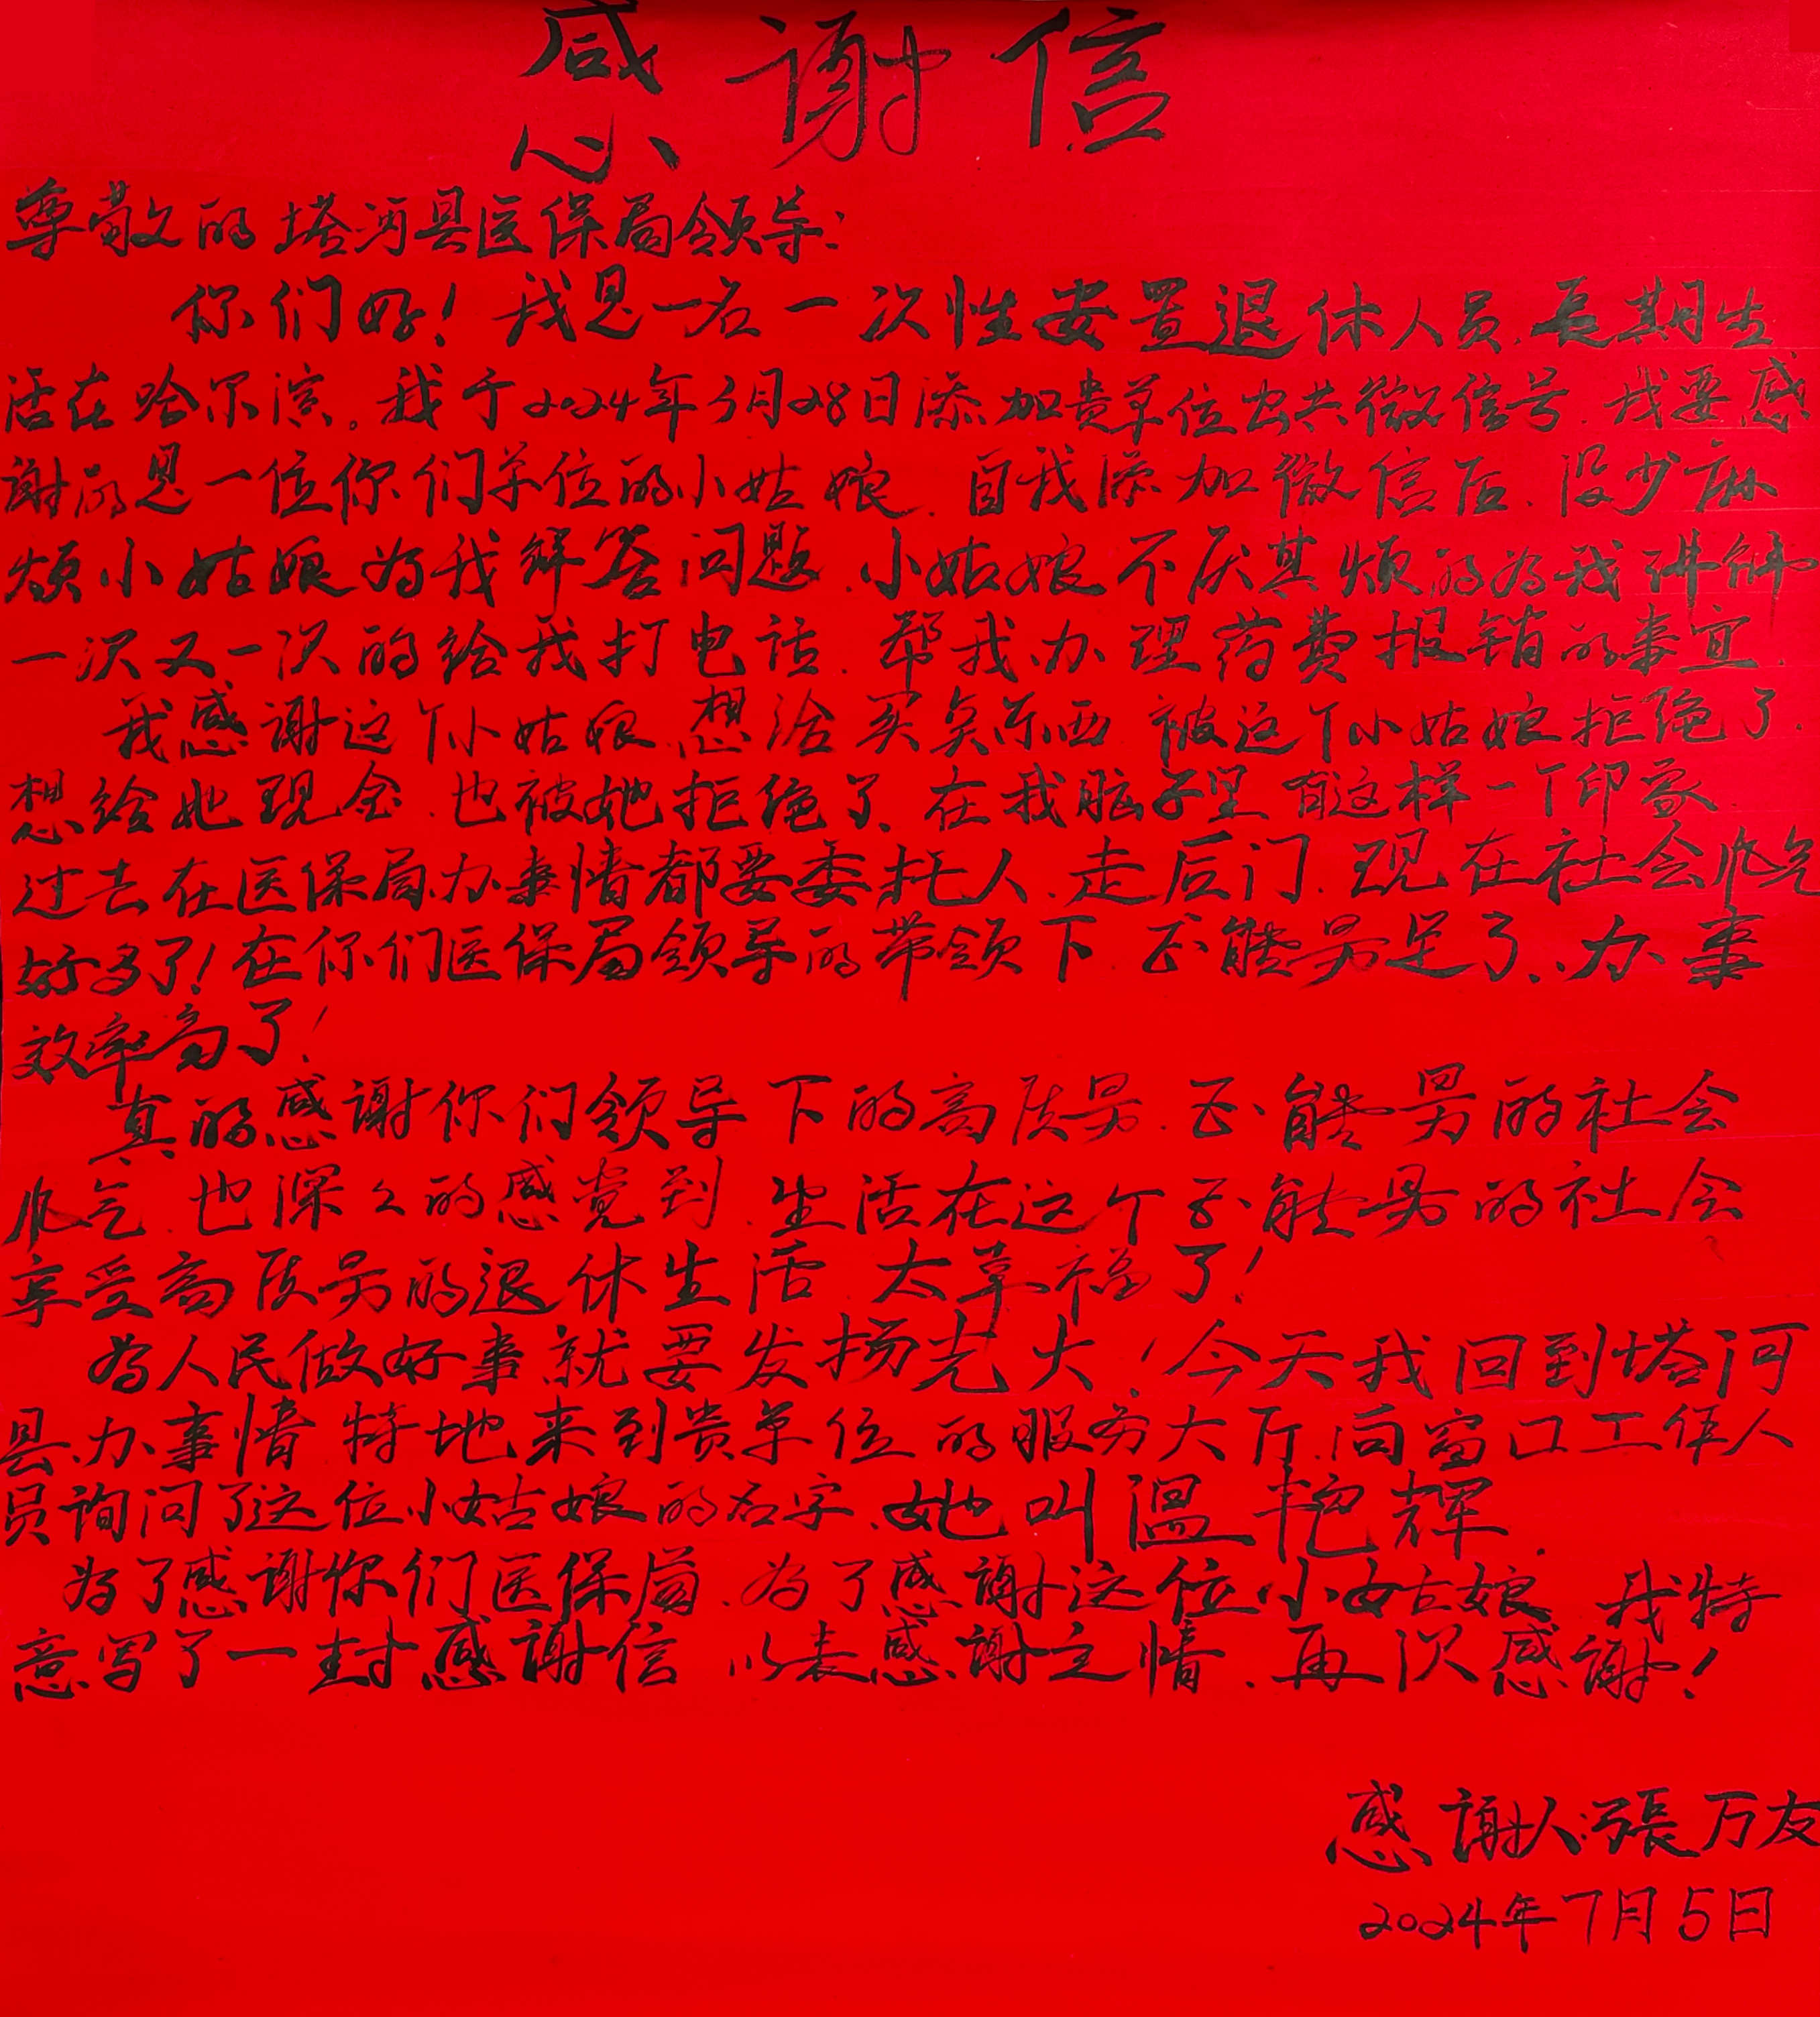 感谢信
尊敬的塔河县医保局领导：
你们好！我是一名一次性安置退休人员.长期生
活在哈尔滨。我于2024年3月28日添加贵单位公共微信号.我要感
谢的是一位你们单位的小姑娘.自我添加微信后.没少麻
烦小姑娘为我解答问题.小姑娘不厌其烦的为我讲解
一次又一次的给我打电话.帮我办理药费报销的事宜.
我感谢这个小姑娘.想给买点东西 被这个小姑娘拒绝了.
想给她现金.也被她拒绝了.在我脑子里 有这样一个印象
过去在医保局办事情都要委托人.走后门.现在社会风气
好多了!在你们医保局领导的带领下.正能量足了.办事
效率高了!
真的感谢你们领导下的高质量.正能量的社会
风气.也深々的感觉到.生活在这个正能量的社会
享受高质量的退休生活 太幸福了!
为人民做好事就要发扬光大!今天我回到塔河
县办事情 特地来到贵单位的服务大厅.向窗口工作人
员询问了这位小姑娘的名字.她叫温艳辉.
为了感谢你们医保局.为了感谢这位小姑娘 我特
意写了一封感谢信 以表感谢之情.再次感谢!
感谢人:張万友
2024年7月5日